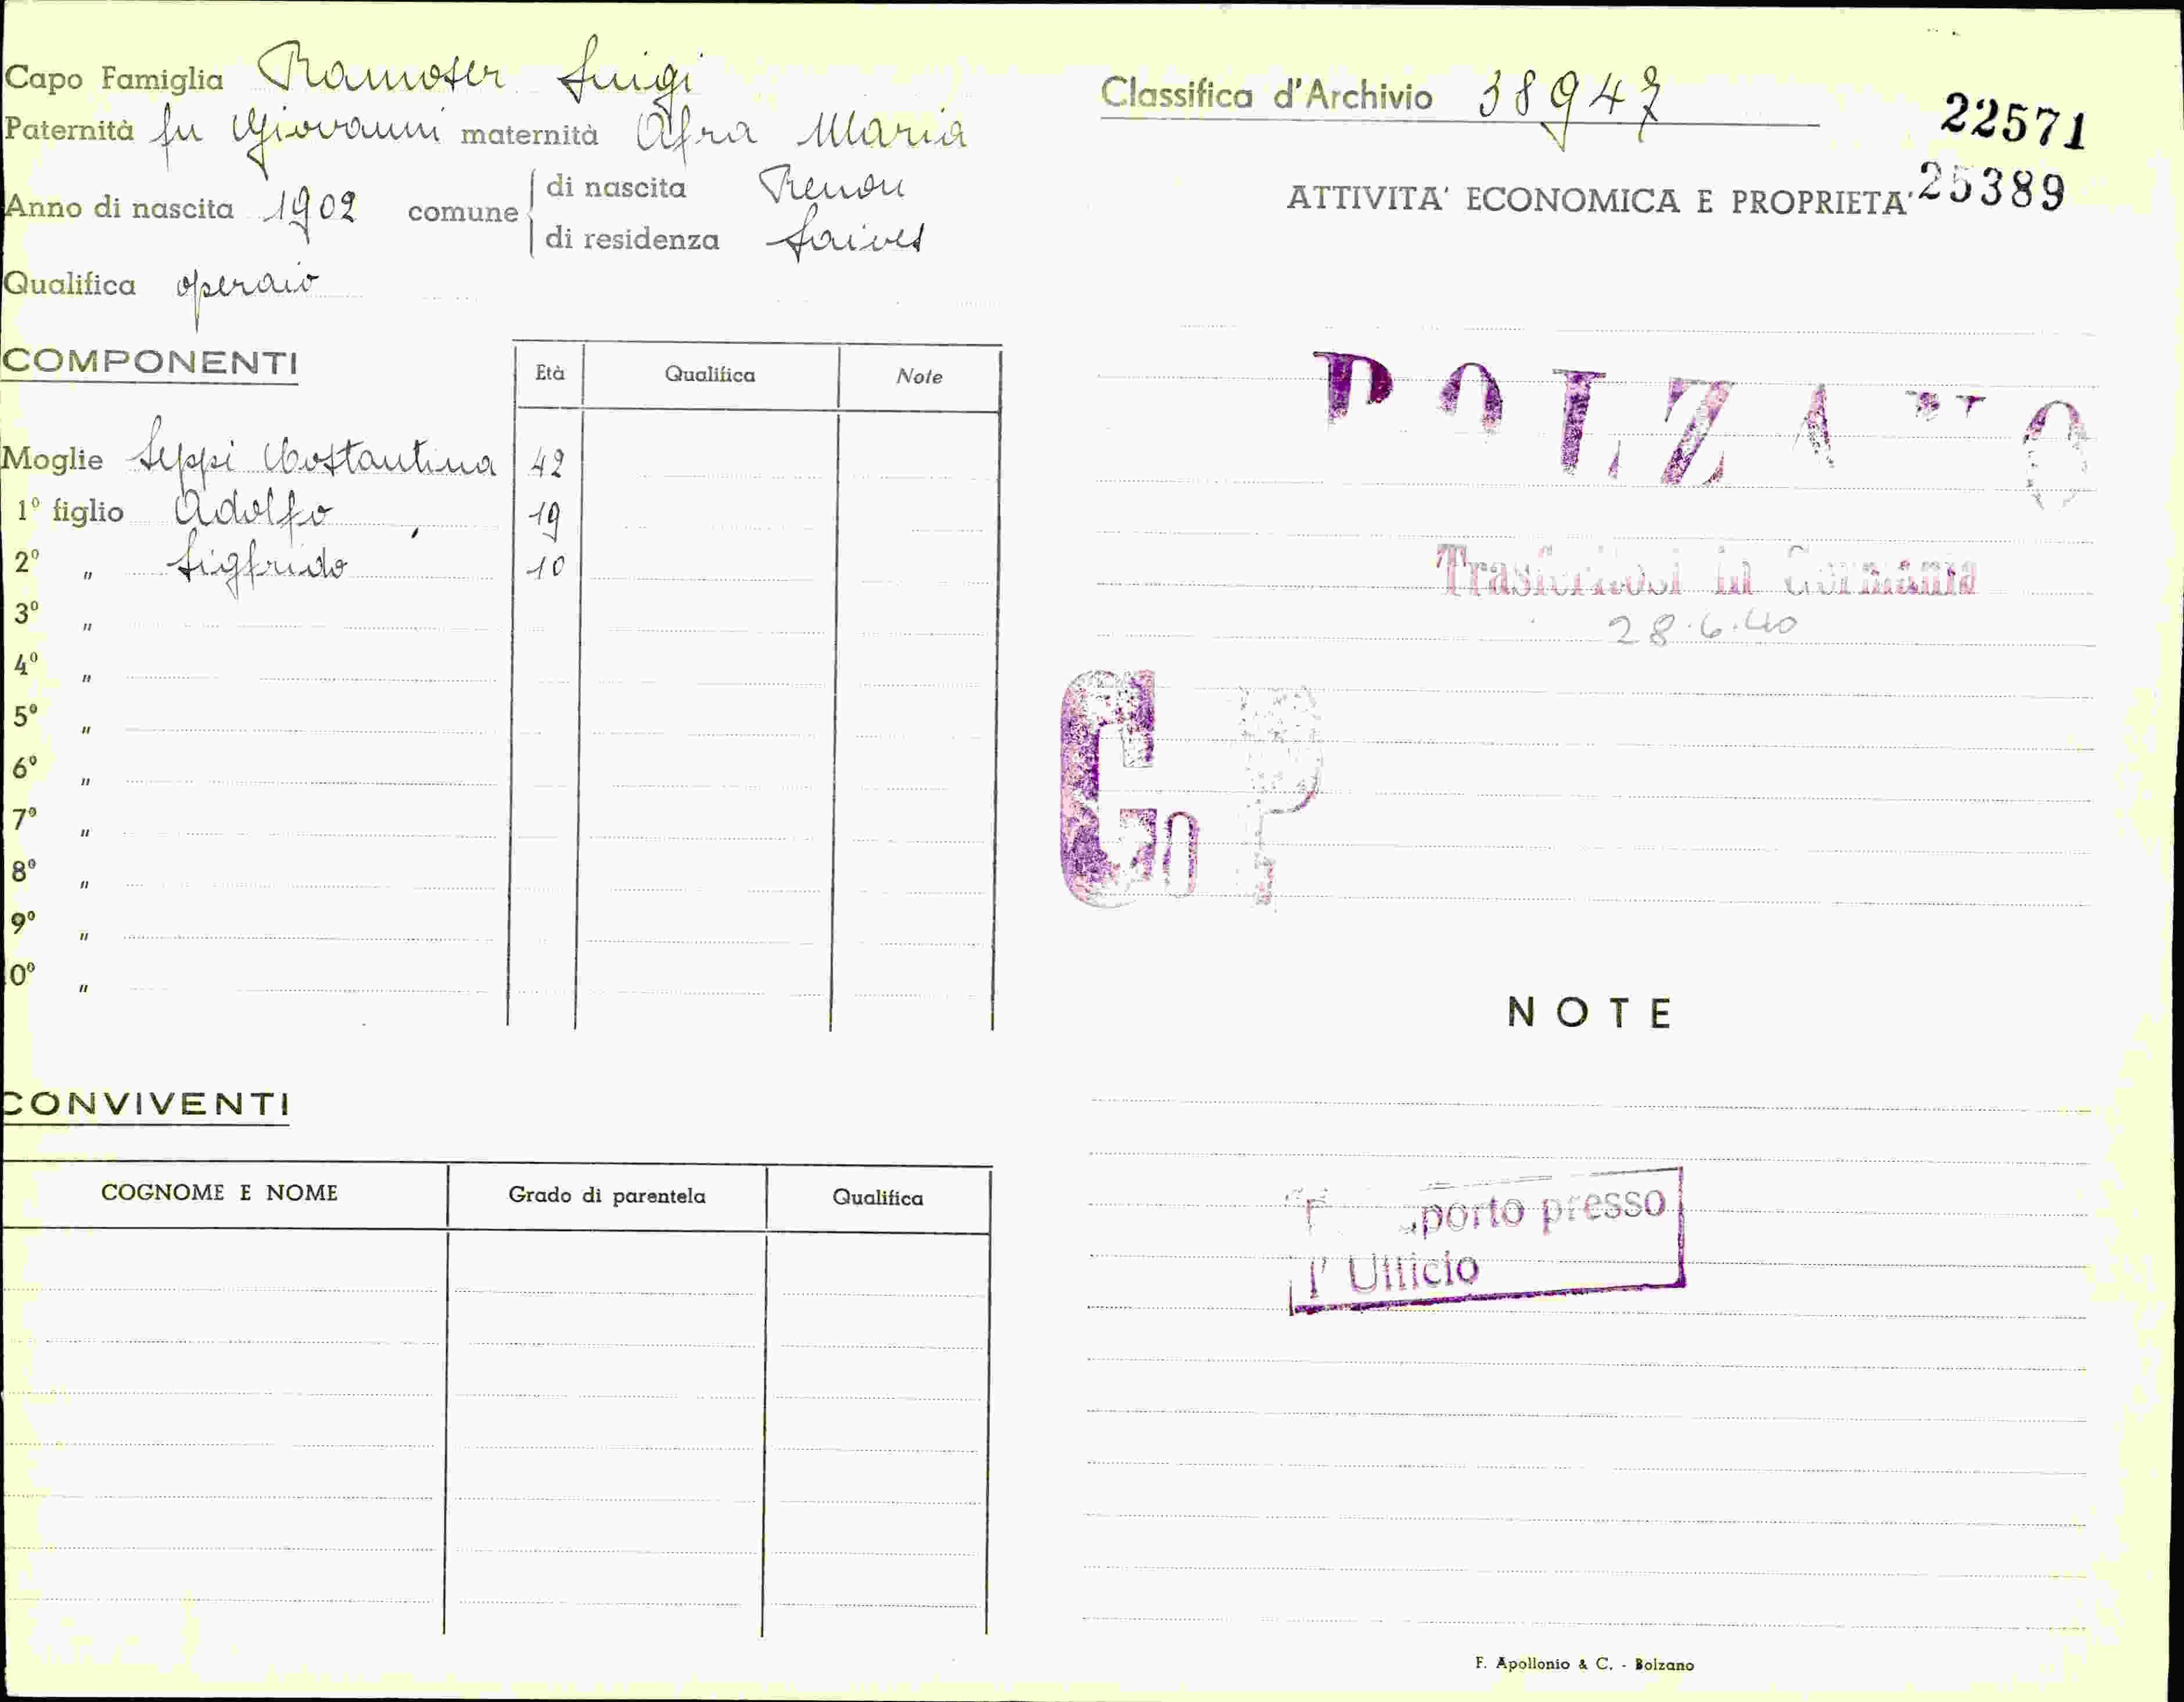 Capo Famiglia Ramoser Luigi
Paternità fu Giovanni maternità Afra Maria
Anno di nascita 1902 comune di nascita Renon
di residenza Laives
Qualifica operaio
COMPONENTI
Età Qualifica Note
Moglie Seppi Costantina 42
1º figlio Adolfo 19
2º " Sigfrido 10
3º "
4º "
5º "
6º "
7º "
8º "
9º "
0º "
CONVIVENTI
COGNOME E NOME Grado di parentela Qualifica
Classifica d'Archivio 38947
22571
ATTIVITA' ECONOMICA E PROPRIETA' 25389
BOLZANO
Trasferitosi in Germania
28.6.40
G P
NOTE
porto presso
l' Ufficio
F. Apollonio & C. - Bolzano